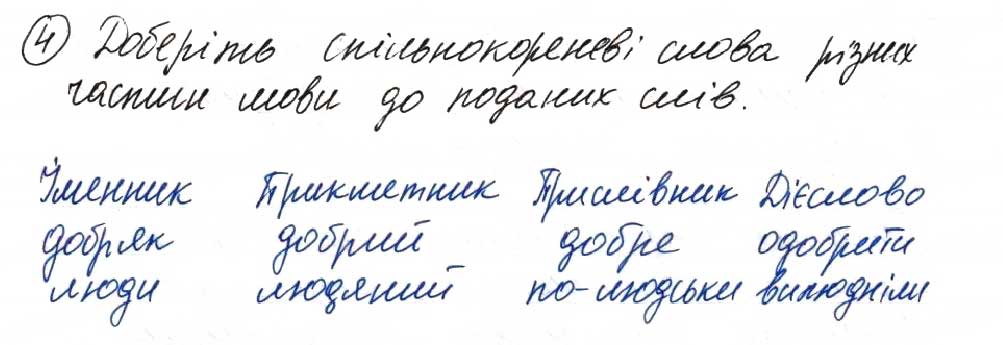 4 Доберіть спільнокореневі слова різних
частин мови до поданих слів.
Іменник Прикметник Прислівник Дієслово
добряк добрий добре одобрити
люди людяний по-людськи вилюдніли